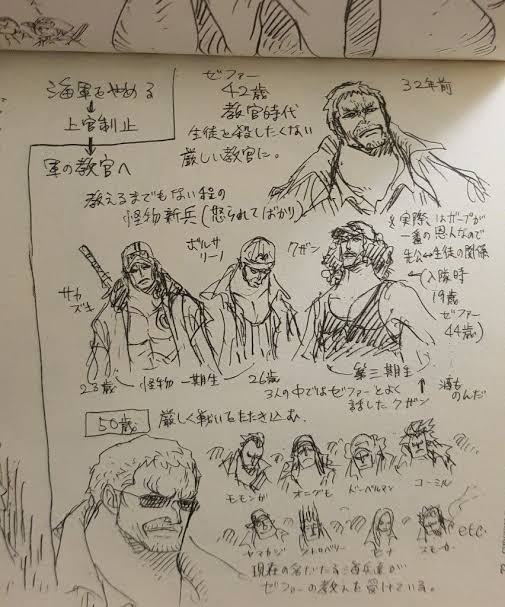 海軍をやめる
上官制止
軍の教官へ
ゼファー
42歳
教官時代
生徒を殺したくない
厳しい教官に。
32年前
教えるまでもない程の
怪物新兵(怒られてばかり)
※実際はガープが
一番の恩人なので
先公↔生徒の関係
(入隊時
19歳
ゼファー
44歳)
サカズキ
ボルサリーノ
クザン
23歳
怪物一期生
26歳
第三期生
3人の中ではゼファーとよく
話したクザン
↑酒も
のんだ
50歳
厳しく戦いをたたき込む。
モモンガ
オニグモ
ドーベルマン
コーミル
ヤマカジ
ストロベリー
ヒナ
スモーカー
etc.
現在の名だたる海兵達が
ゼファーの教えを受けている。